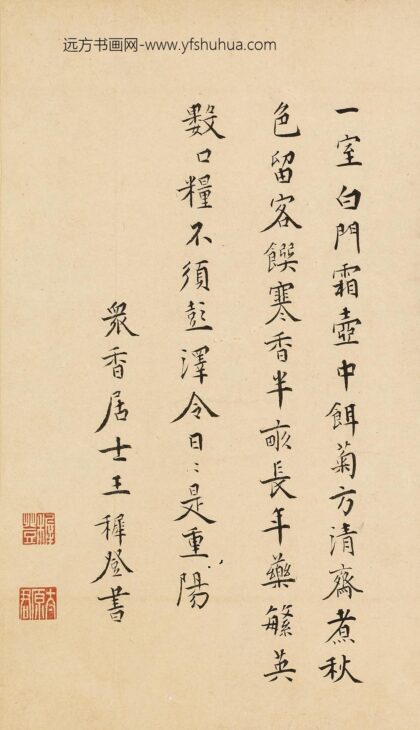 远方书画网-www.yfshuhua.com
一室白門霜壺中餌菊方清齋煮秋
色留客饌寒香半畝長年藥繁英
數口糧不須彭澤令日〻是重陽
衆香居士王穉登書